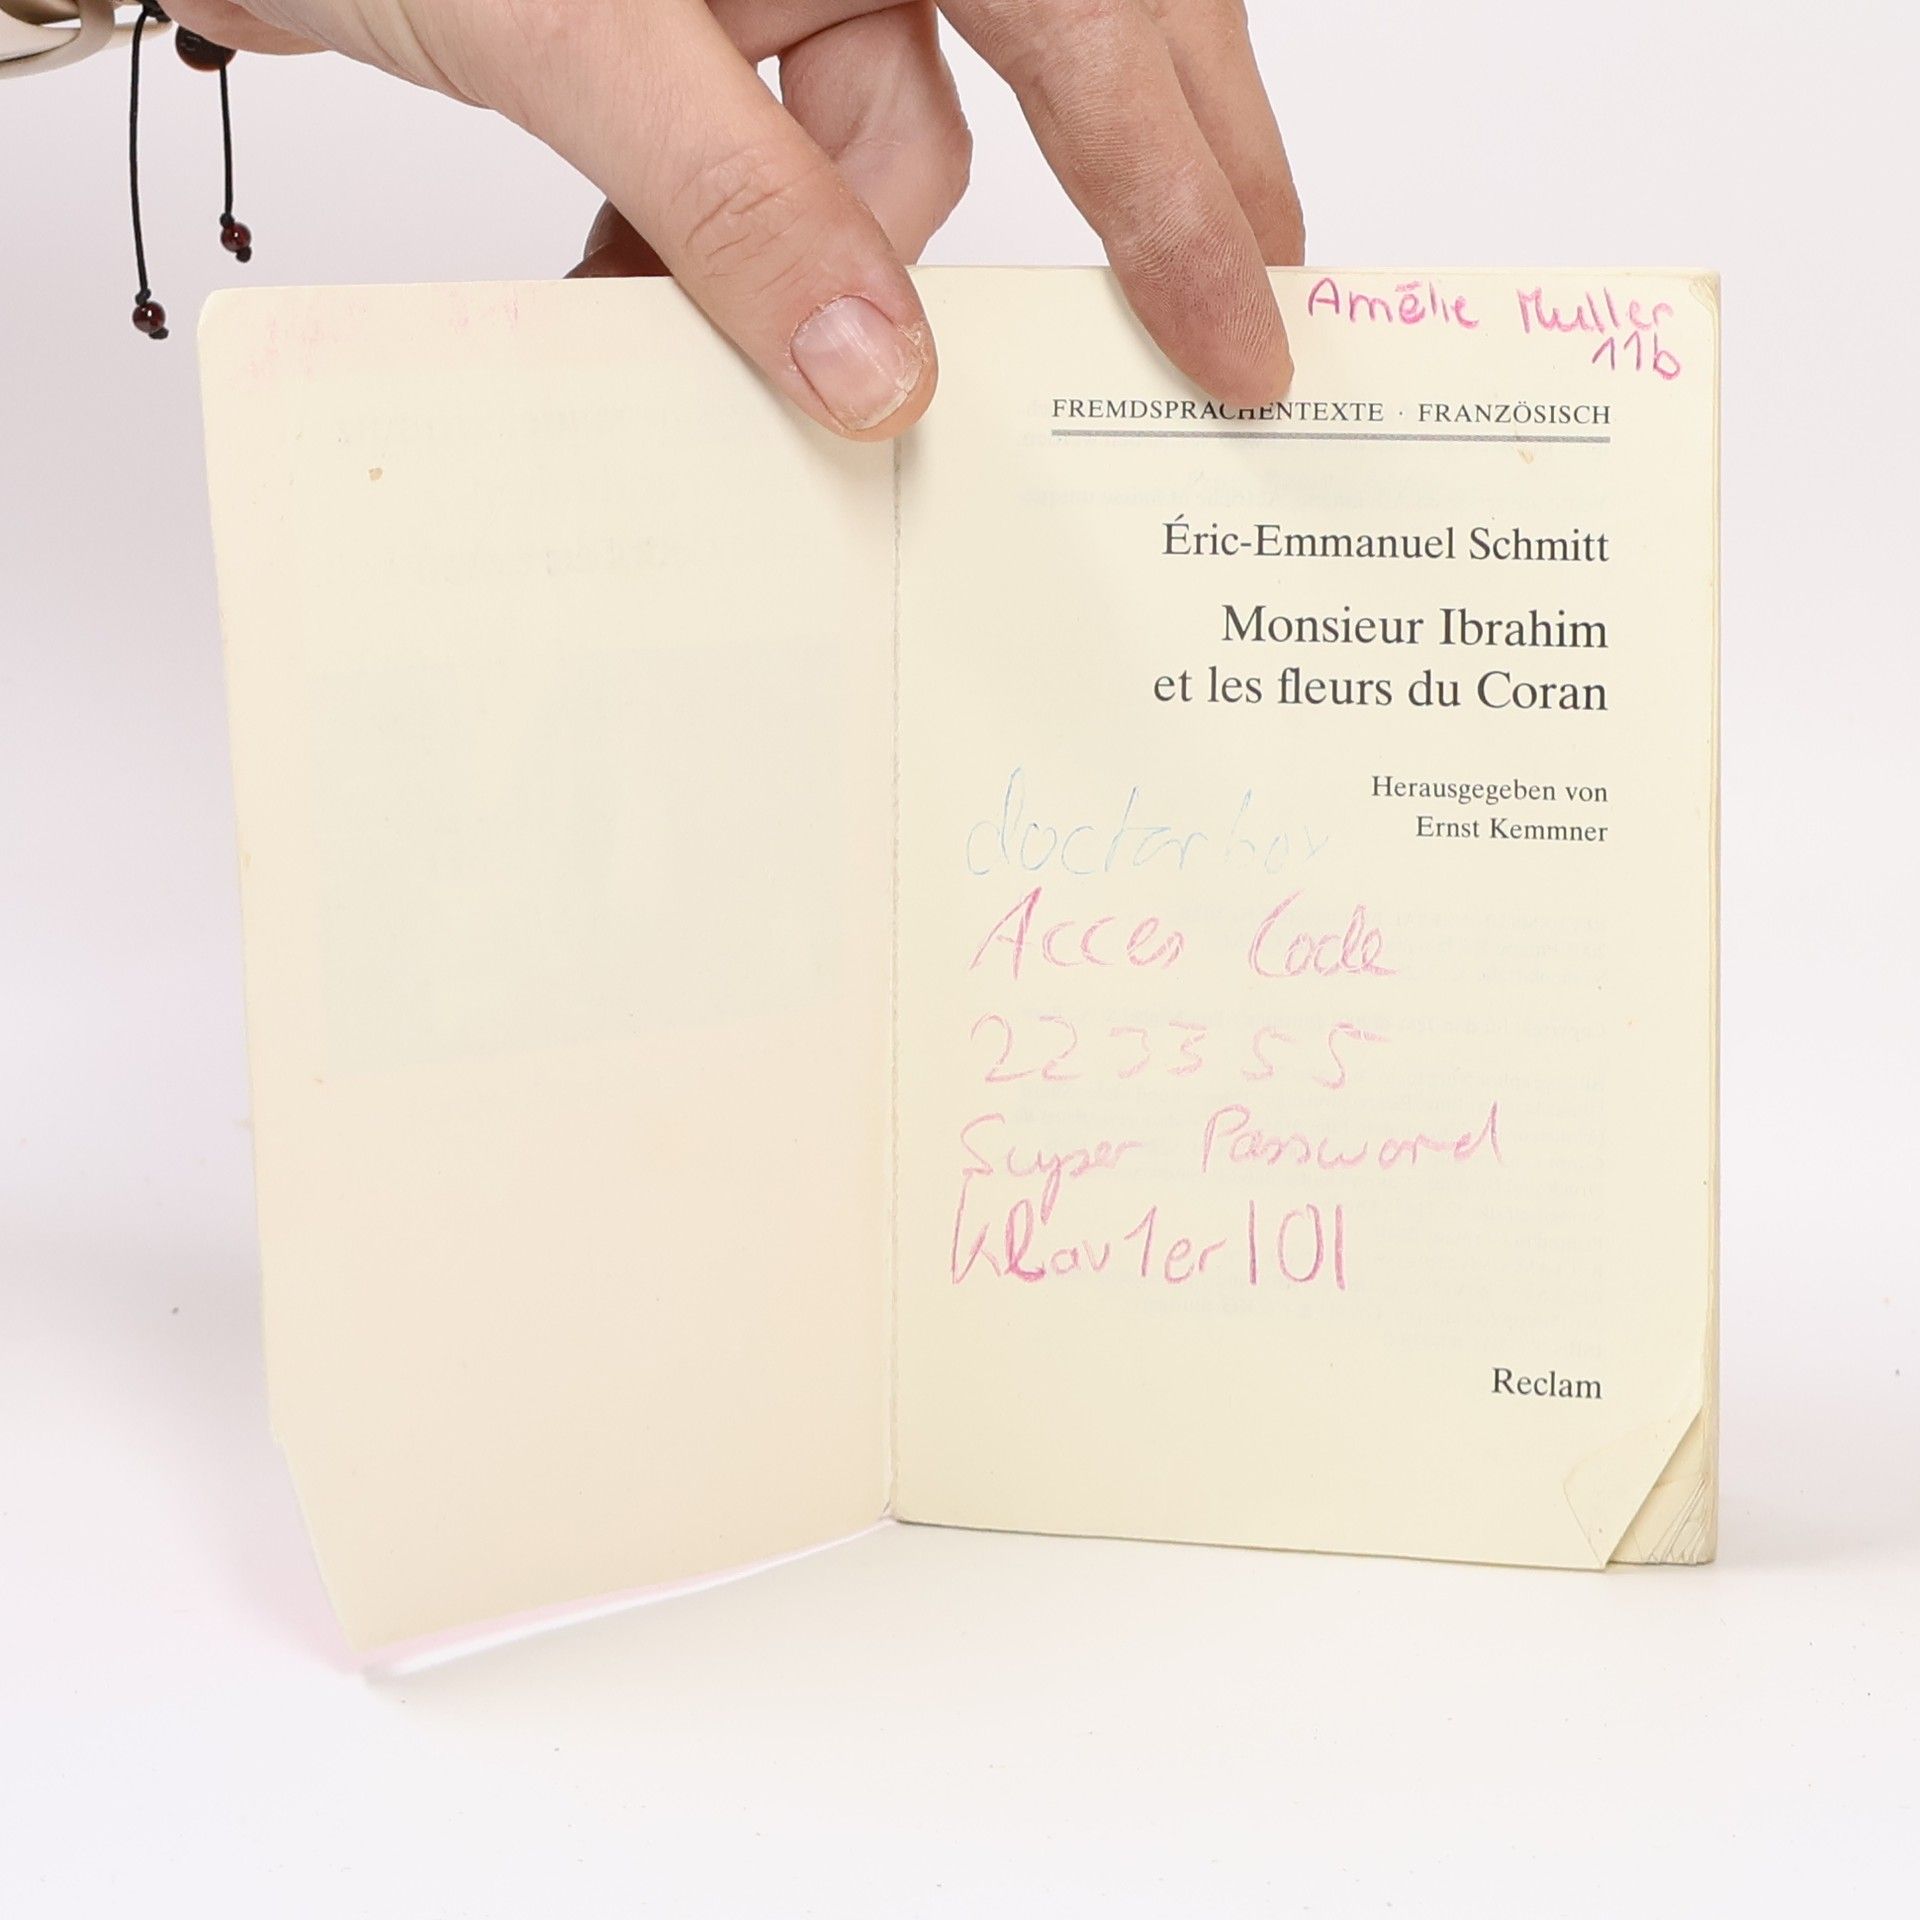 Amélie Muller
11b
FREMDSPRACHENTEXTE · FRANZÖSISCH
Éric-Emmanuel Schmitt
Monsieur Ibrahim
et les fleurs du Coran
Herausgegeben von
Ernst Kemmner
doctorbox
Acces Code
223355
Super Password
Klav1er101
Reclam